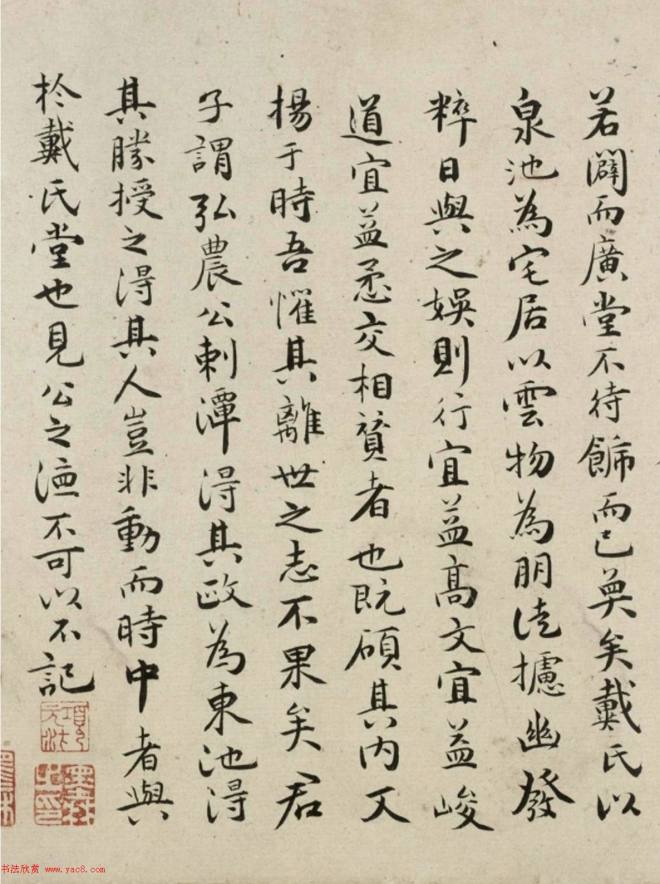 若闢而廣堂不待飾而已奐矣戴氏以
泉池為宅居以雲物為朋徒攄幽發
粹日與之娛則行宜益高文宜益峻
道宜益懋交相贊者也既碩其內又
揚于時吾懼其離世之志不果矣君
子謂弘農公刺潭得其政為東池得
其勝授之得其人豈非動而時中者與
於戴氏堂也見公之德不可以不記
书法欣赏 www.yac8.com